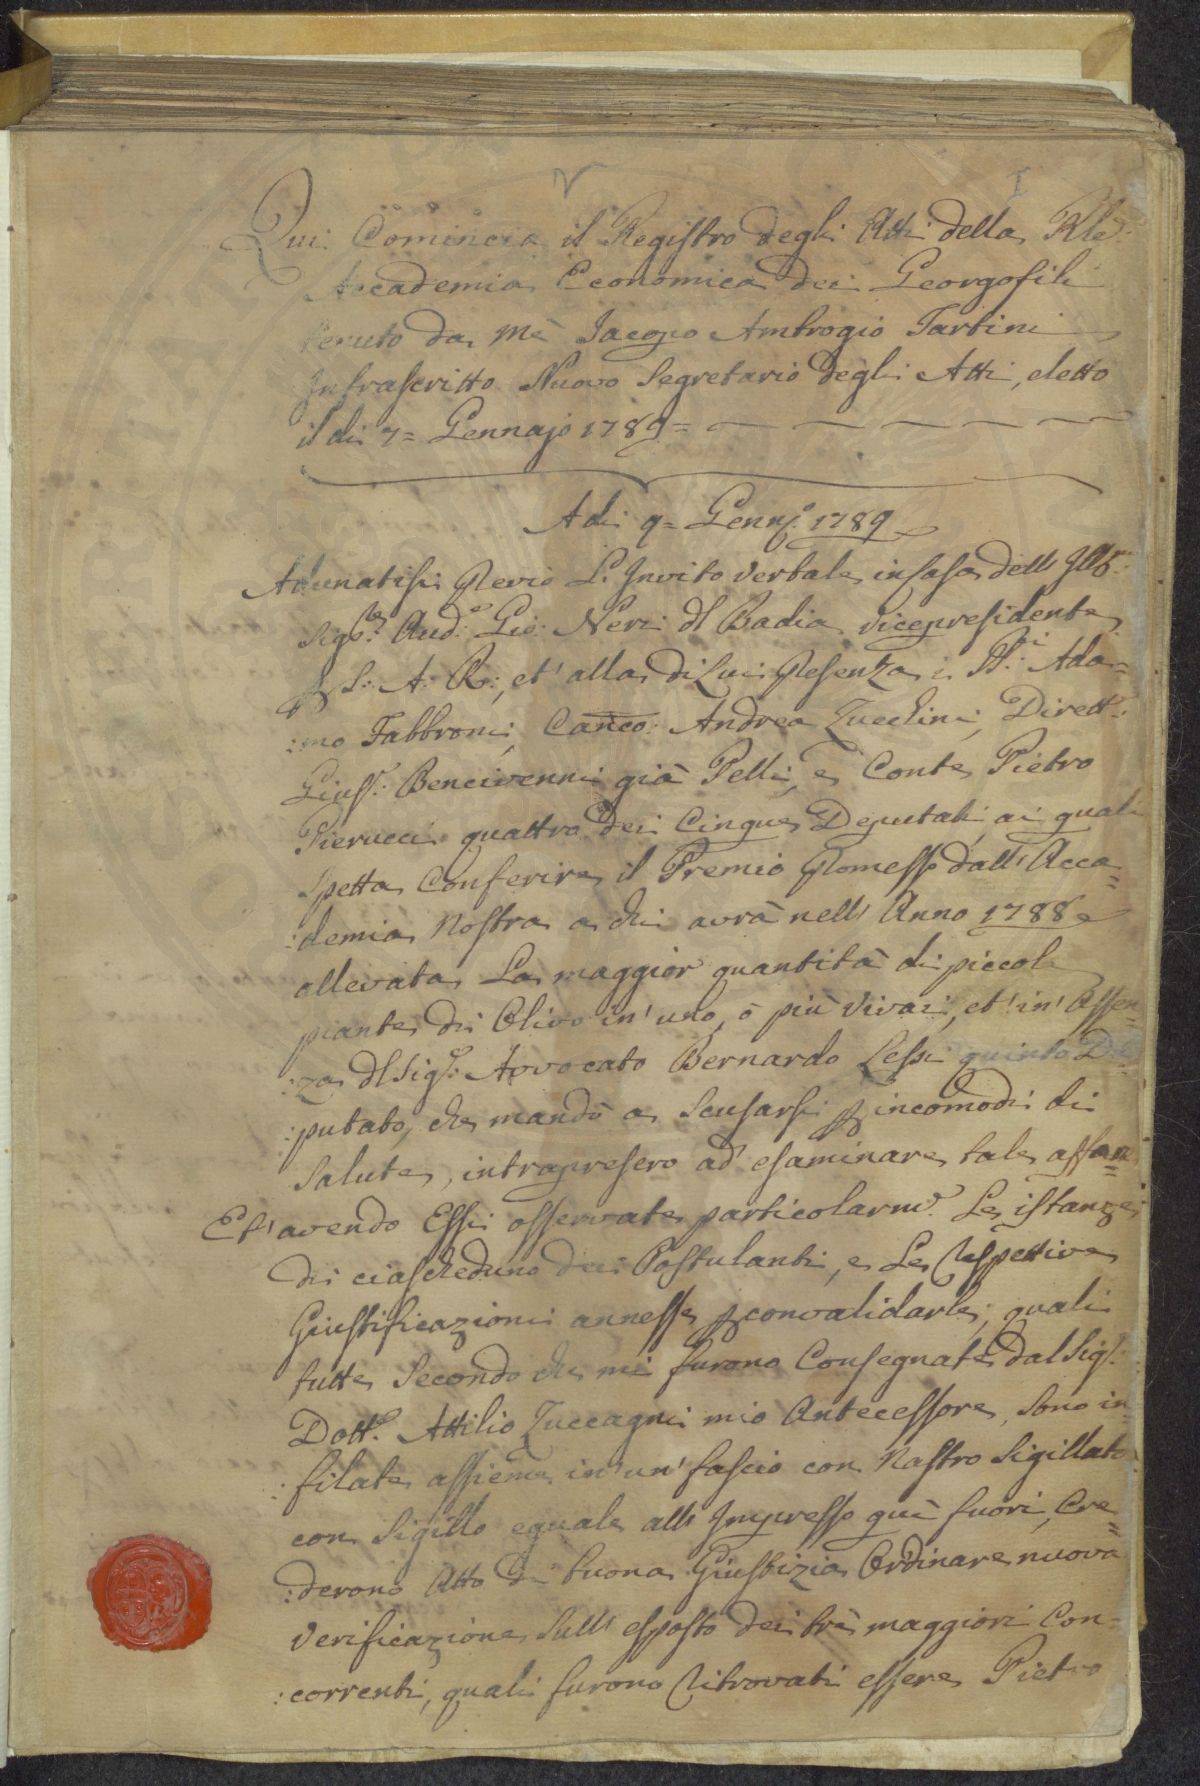 I
Qui Comincia il Registro degli Atti della Rle:
Accademia Economica dei Georgofili
tenuto da mè Jacopo Ambrogio Tartini
Infrascritto Nuovo Segretario degli Atti, eletto
il dì 7= Gennajo 1789=
Adì 9= Gennjo: 1789
Adunatisi Previo L. Invito verbale in Casa dell' Illmo:
Sigre: Aud:e Gio: Neri dl Badia vicepresidente
P S: A: R:, et' alla di Lui Presenza i SS:ri Ada=
:mo Fabbroni, Canco: Andrea Zucchini, Dirett:
Gius: Bencivenni già Pelli, e Conte Pietro
Pierucci quattro dei Cinque Deputati, ai quali
spetta Conferire il Premio Promesso dall' Acca=
:demia Nostra a chi avrà nell' Anno 1788
allevata La maggior quantità di piccole
piante di Olivo in' uno, ò più vivai, et' in' Assen=
:za dl Sigr: Avvocato Bernardo Lessi quinto De=
:putato, che mandò a Scusarsi p incomodi di
Salute, intrapresero ad' esaminare tale affare
Et' avendo Essi osservate particolarme. Le istanze
di ciascheduno dei Postulanti, e Le respettive
Giustificazioni annesse p convalidarle, quali
tutte Secondo che mi furono Consegnate dal Sigr:
Dotte. Attilio Zuccagni mio Antecessore, sono in=
:filate assieme in' un' fascio con Nastro Sigillato
con Sigillo eguale all' Impresso quì fuori, Cre=
:derono Atto di buona Giustizia Ordinare nuova
verificazione sull' esposto dei trè maggiori Con=
:correnti, quali furono ritrovati essere Pietro